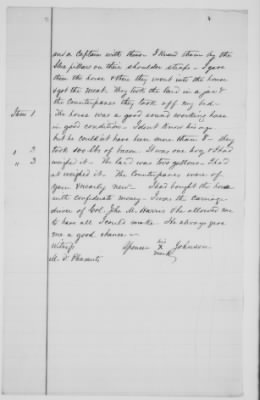 and a Captain with them I knew them by the
Shu pillow on their shoulder straps. I gave
them the horse & then they went into the house
& got the meat. They took the lard in a jar &
the counterpanes they took off my bed.
Item 1 The horse was a good sound working horse
in good condition. I don't know his age
but he couldn't have been more than 8. They
" 2 took 100 lbs of bacon. I was one hog & I had
" 3 weighed it. The lard was two gallons. I had
it weighed it. The counterpanes were of
yarn & nearly new. I had bought the horse
with confederate money. I was the carriage
driver of Col. John M. Harris & he allowed me
to have all I could make. He always give
me a good chance.
Witness Spencer his X mark Johnson
M. F. Pleasants